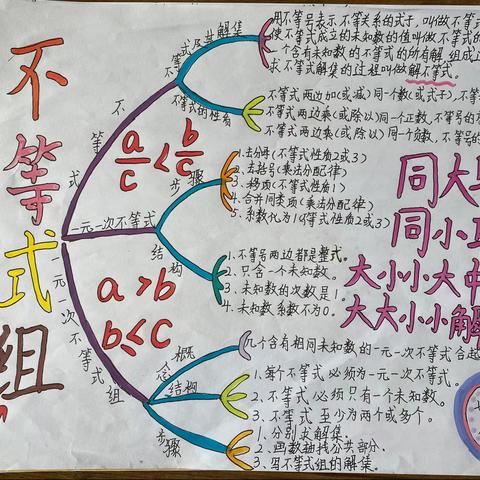 不等式组
不等式
不等式及其解集
用不等号表示不等关系的式子,叫做不等式
使不等式成立的未知数的值叫做不等式的
一个含有未知数的不等式的所有解,组成
求不等式解集的过程叫做解不等式。
不等式的性质
不等式两边加(或减)同一个数(或式子),不等
不等式两边乘(或除以)同一个正数,不等号的
不等式两边乘(或除以)同一个负数,不等号的
a/c < b/c
一元一次不等式
步骤
1、去分母(不等式性质2或3)
2、去括号(乘法分配律)
3、移项(不等式性质1)
4、合并同类项(乘法分配律)
5、系数化为1(不等式性质2或3)
结构
1.不等号两边都是整式。
2.只含一个未知数。
3.未知数的次数是1。
4.未知数系数不为0。
同大
同小
大小小大中
大大小小解
a > b
b ≤ c
一元一次不等式组
概念
几个含有相同未知数的一元一次不等式合起
结构
1、每个不等式必须为一元一次不等式。
2、不等式必须只有一个未知数。
3、不等式至少为两个或多个。
步骤
1、分别求解集。
2、画数轴找公共部分。
3、写不等式组的解集。